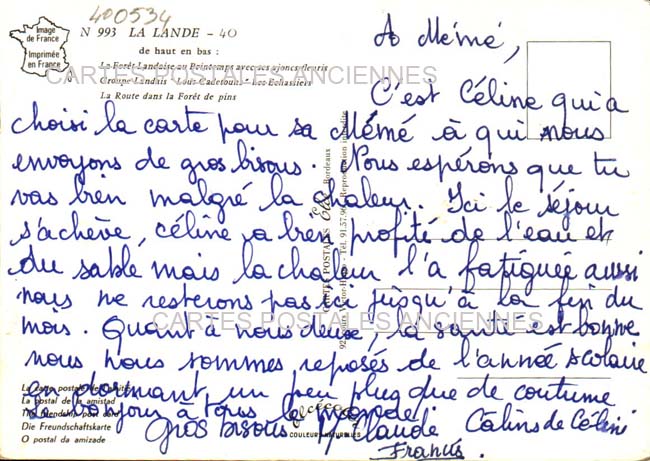 400534
Image de France
Imprimée en France
N 993 LA LANDE - 40
de haut en bas :
La Forêt Landaise au Printemps avec ses ajoncs fleuris
Groupe Landais "Lous Cadetouns" Les Echassiers
La Route dans la Forêt de pins
CARTES POSTALES ANCIENNES
A Mémé,
C'est Céline qui a
choisi la carte pour sa Mémé à qui nous
envoyons de gros bisous. Nous espérons que tu
vas bien malgré la chaleur. Ici le séjour
s'achève, céline a bien profité de l'eau et
du sable mais la chaleur l'a fatiguée aussi
nous ne resterons pas ici jusqu'à la fin du
mois. Quant à nous deux, la santé est bonne
nous nous sommes reposés de l'année scolaire
en dormant un peu plus que de coutume
Le bonjour à tous le monde
Gros bisous M Claude
Calins de Céline
Francis.
CARTES POSTALES ANCIENNES
La carte postale de l'amitié
La postal de la amistad
The friendship post card
Die Freundschaftskarte
O postal da amizade
COULEURS NATURELLES
CARTES POSTALES
Victor-Hugo - Tél. 91.57.96 Reproduction interdite
Bordeaux